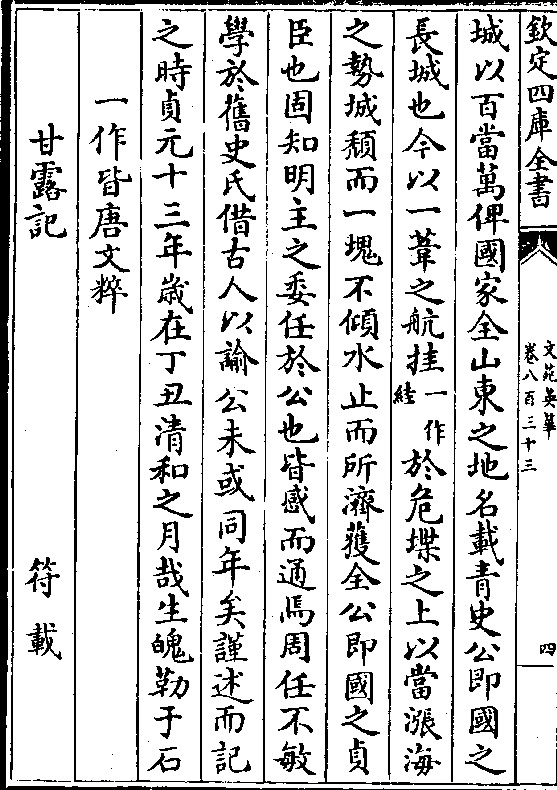 欽定四庫全書
文苑英華
卷八百三十三
四
城以百當萬俾國家全山東之地名載青史公即國之
長城也今以一葦之航挂一作絓於危堞之上以當漲海
之勢城頹而一塊不傾水止而所濟獲全公即國之貞
臣也固知明主之委任於公也皆感而通焉周任不敏
學於舊史氏借古人以諭公未或同年矣謹述而記
之時貞元十三年歲在丁丑清和之月哉生魄勒于石
一作皆唐文粹
甘露記 符載